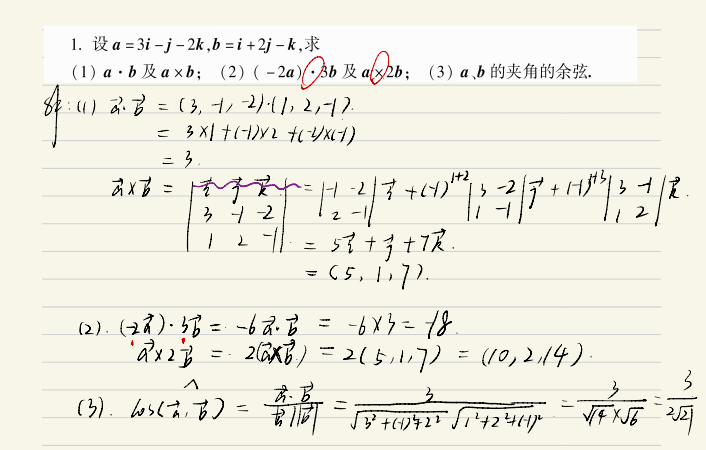 1. 设 a=3i-j-2k,b=i+2j-k,求
(1) a·b 及 a×b; (2) (-2a)·3b 及 a×2b; (3) a、b 的夹角的余弦.
解:(1) a⃗·b⃗ = (3,-1,-2)·(1,2,-1).
= 3×1+(-1)×2+(-2)×(-1)
= 3.
a⃗×b⃗ = | i⃗ j⃗ k⃗ ; 3 -1 -2 ; 1 2 -1 | = | -1 -2 ; 2 -1 | i⃗ + (-1)^{1+2} | 3 -2 ; 1 -1 | j⃗ + (-1)^{1+3} | 3 -1 ; 1 2 | k⃗.
= 5i⃗ + j⃗ + 7k⃗.
= (5, 1, 7).
(2). (-2a⃗)·3b⃗ = -6a⃗·b⃗ = -6×3 = -18.
a⃗×2b⃗ = 2(a⃗×b⃗) = 2(5,1,7) = (10,2,14).
(3). cos(a⃗,^b⃗) = a⃗·b⃗/|a⃗||b⃗| = 3/√3²+(-1)²+2² √1²+2²+(-1)² = 3/√14×√6 = 3/2√21